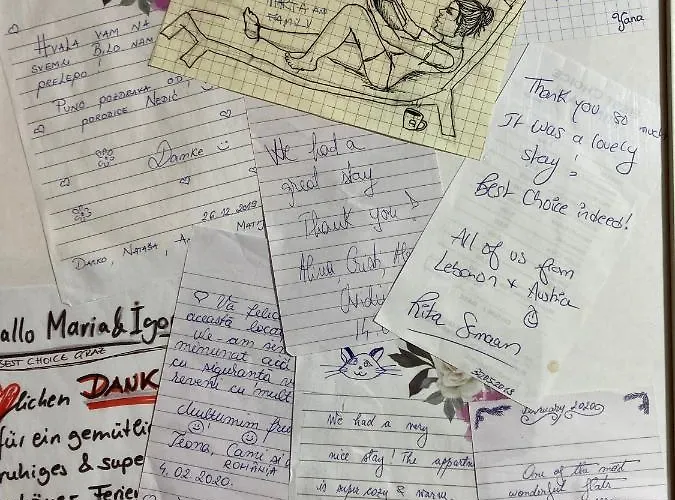 HVALA VAM NA
SVEMU BILO NAM
PRELEPO!
PUNO POZDRAVA OD
PORODICE NEDIĆ
Danke
26.12.2019
DARKO, NATAŠA,
FAMILY
Yana
We had a
great stay
Thank you
Thank you so much
It was a lovely
stay!
Best Choice indeed!
All of us from
Lebanon & Austria
Rita Semaan
allo Maria & İgo
BEST CHOICE GRAZ
lichen DANK
für ein gemütli
ruhiges & supe
Ferie
Vă felic
această loca
Ne-am sim
minunat aici
cu siguranță v
reveni cu mult
Mulțumim fru
ROMÂNIA
4.02.2020.
We had a very
nice stay! The appartm
is super cozy & warm
January 2020
One of the most
wonderful flats